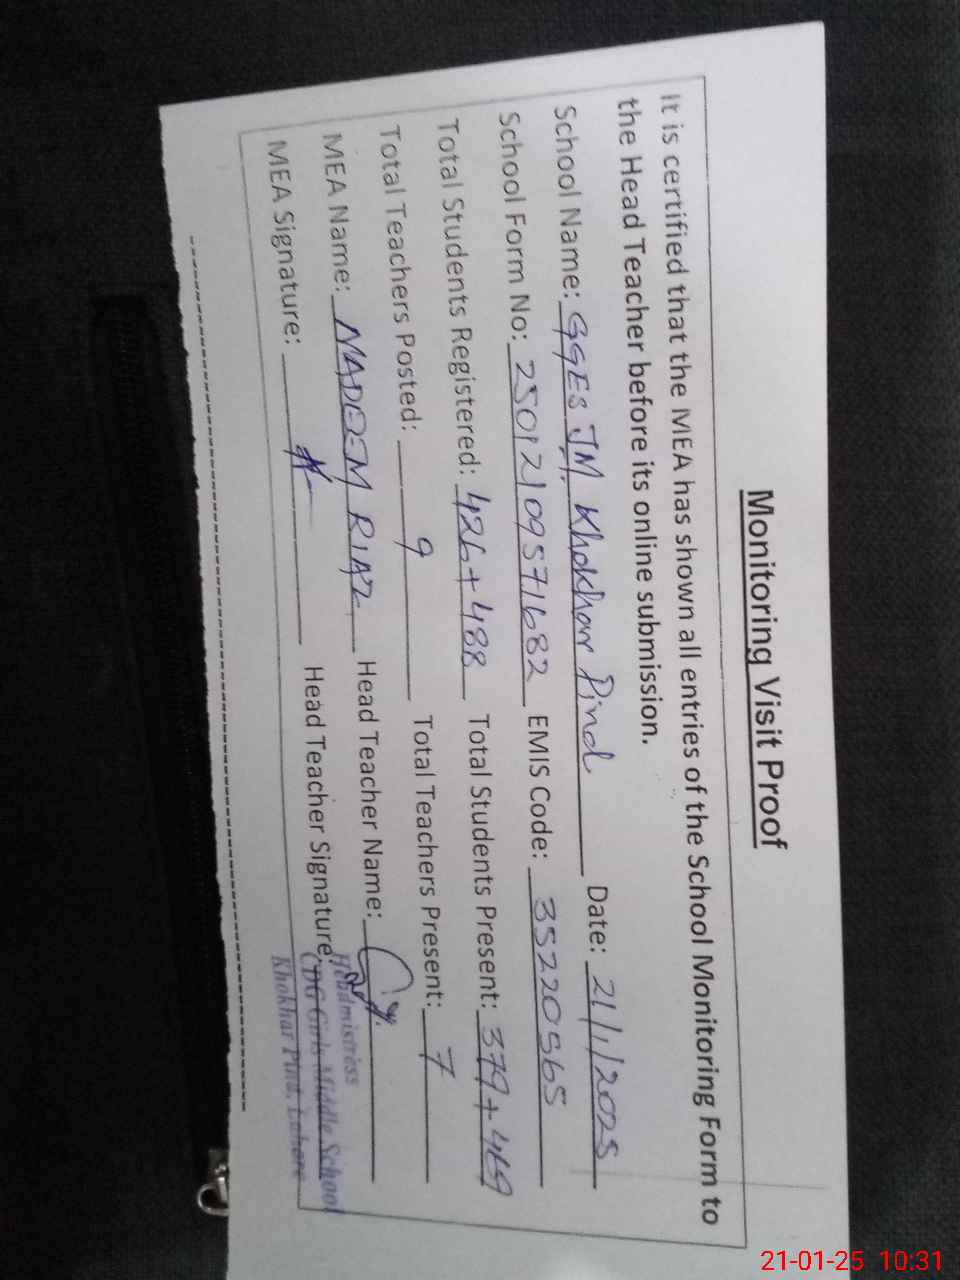 Monitoring Visit Proof
It is certified that the MEA has shown all entries of the School Monitoring Form to
the Head Teacher before its online submission.
School Name: GGES JM Khokhar Pind Date: 21/1/2025
School Form No: 25012109571682 EMIS Code: 35220565
Total Students Registered: 426+488 Total Students Present: 379+469
Total Teachers Posted: 9 Total Teachers Present: 7
MEA Name: NADEEM RIAZ Head Teacher Name:
MEA Signature: Head Teacher Signature:
Headmistress
CDG Girls Middle School
Khokhar Pind, Lahore
21-01-25 10:31